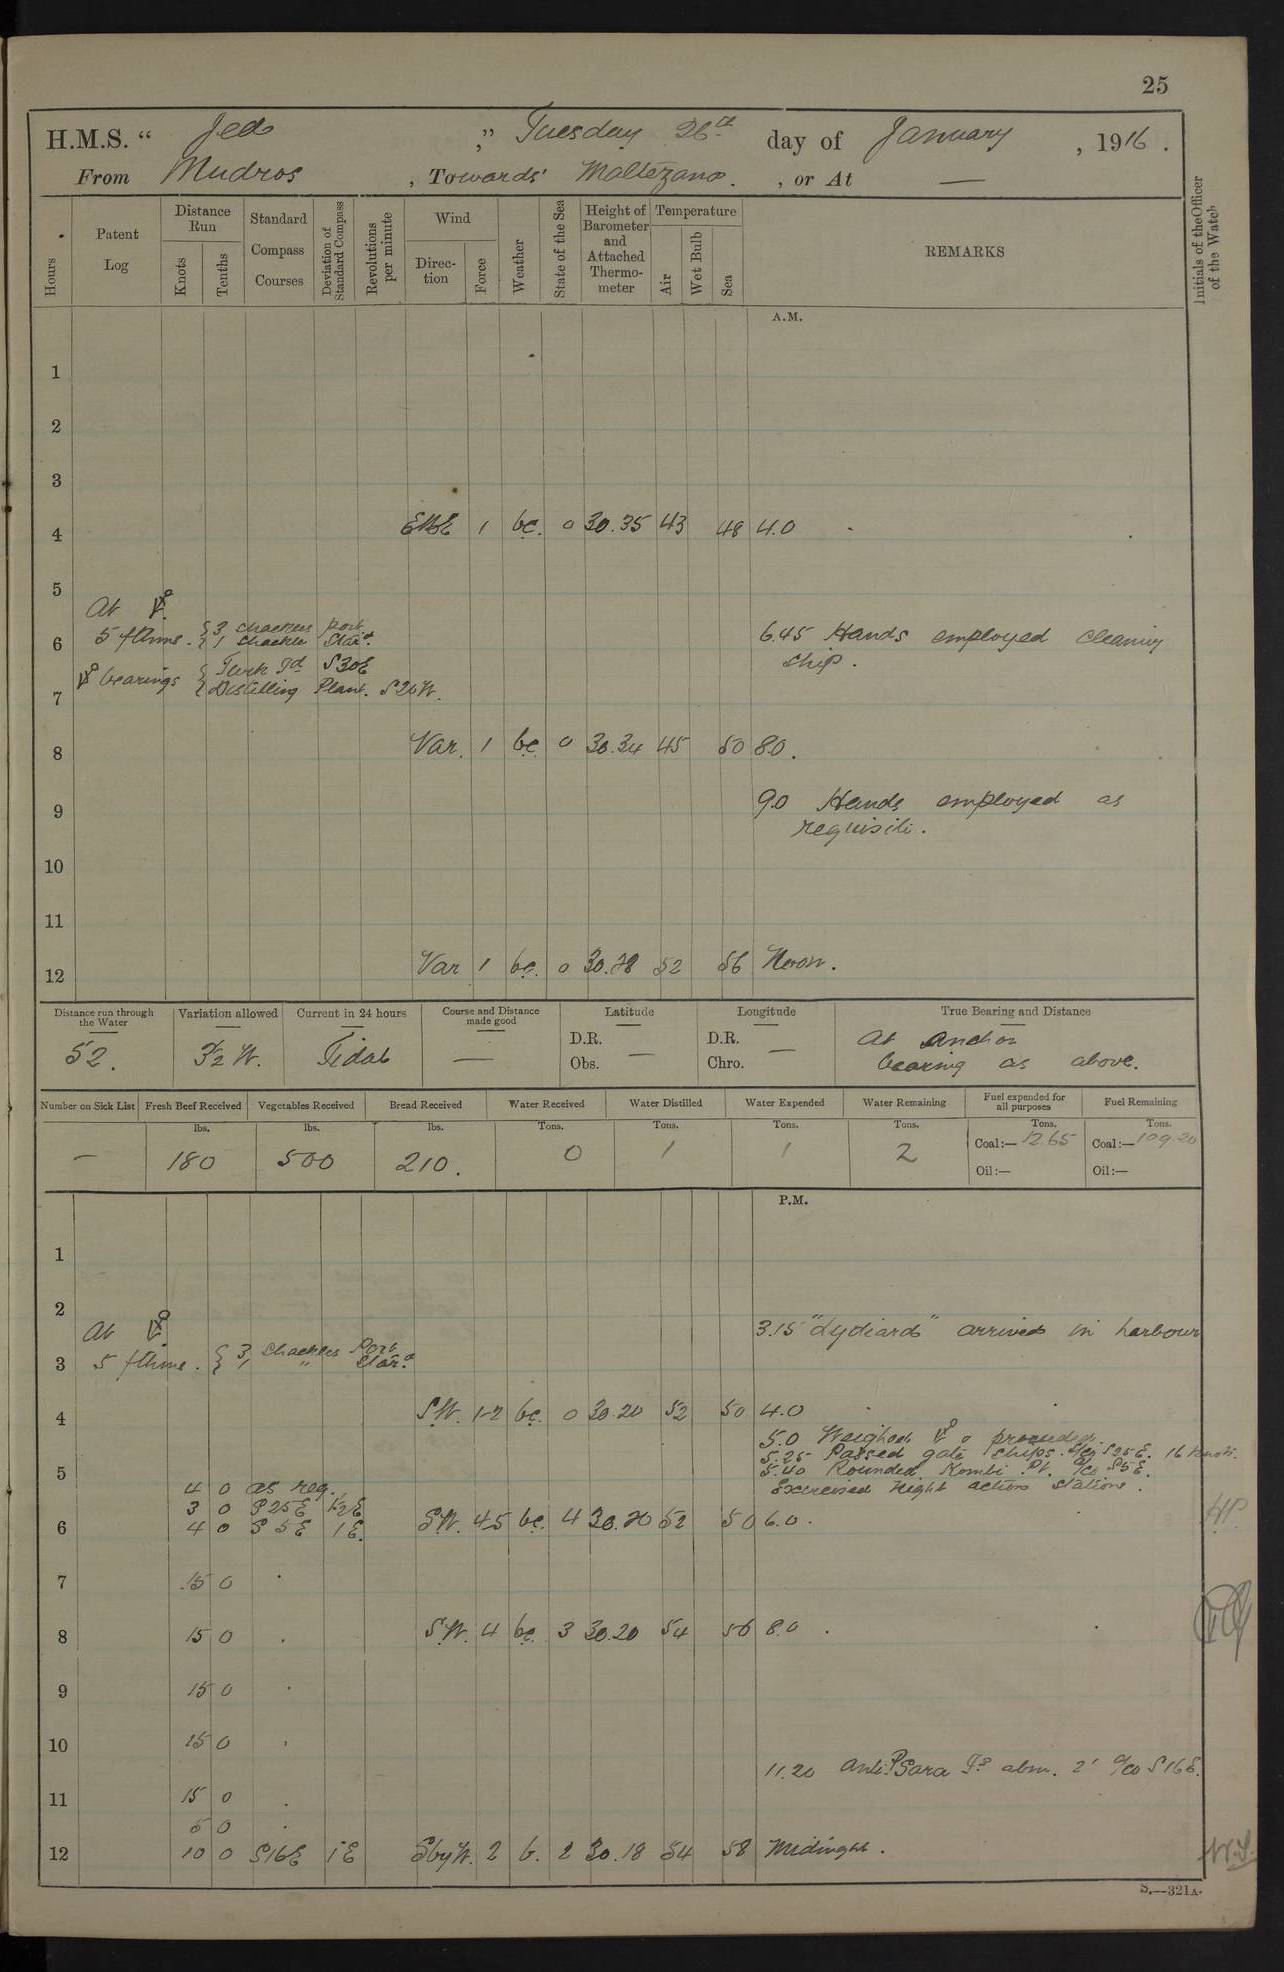 25
H.M.S. "Jed", Tuesday 26th day of January, 1916.
From Mudros, Towards Maltezana., or At —
Hours
Patent Log
Distance Run
Knots
Tenths
Standard Compass Courses
Deviation of Standard Compass
Revolutions per minute
Wind
Direction
Force
Weather
State of the Sea
Height of Barometer and Attached Thermometer
Temperature
Air
Wet Bulb
Sea
REMARKS
Initials of the Officer of the Watch
A.M.
1
2
3
4 ENE 1 bc. 0 30.35 43 48 4.0
5
At
5 fthms. { 3 shackles port
6 { 1 shackle Starbd
6.45 Hands employed cleaning
ship.
bearings { Turk Id S30E
{ Distilling Plant. S26W.
7
8 Var. 1 bc 0 30.34 45 50 8.0.
9 9.0 Hands employed as
requisite.
10
11
12 Var 1 bc. 0 30.28 52 56 Noon.
Distance run through the Water
Variation allowed
Current in 24 hours
Course and Distance made good
Latitude
Longitude
True Bearing and Distance
52.
3½ W.
Tidal
—
D.R.
Obs. —
D.R.
Chro. —
At anchor
bearing as above.
Number on Sick List
Fresh Beef Received
Vegetables Received
Bread Received
Water Received
Water Distilled
Water Expended
Water Remaining
Fuel expended for all purposes
Fuel Remaining
lbs. lbs. lbs. Tons. Tons. Tons. Tons. Tons. Tons.
— 180 500 210. 0 1 1 2 Coal:— 12.65 Coal:— 109.20
Oil:— Oil:—
P.M.
1
2
At
3.15 "Lydiard" arrived in harbour
3 5 fthms. { 3 shackles Port
1 " Starbd
4 SW. 1-2 bc. 0 30.20 52 50 4.0
5.0 Weighed & proceeded.
5.25 Passed gate ships. S25E. 16 knots.
5 5.40 Rounded Kombi Pt. a/co S5E.
Exercised Night action stations.
4 0 as req.
3 0 S25E 1½E
6 4 0 S5E 1E. SW. 4-5 bc. 4 30.20 52 50 6.0.
7 15 0
8 15 0 SW. 4 bc. 3 30.20 54 56 8.0.
9 15 0
10 15 0
11.20 Anti Psara Id abm. 2' a/co S16E.
11 15 0
5 0
12 10 0 S16E 1E SbyW. 2 b. 2 30.18 54 58 Midnight.
S.—321A.